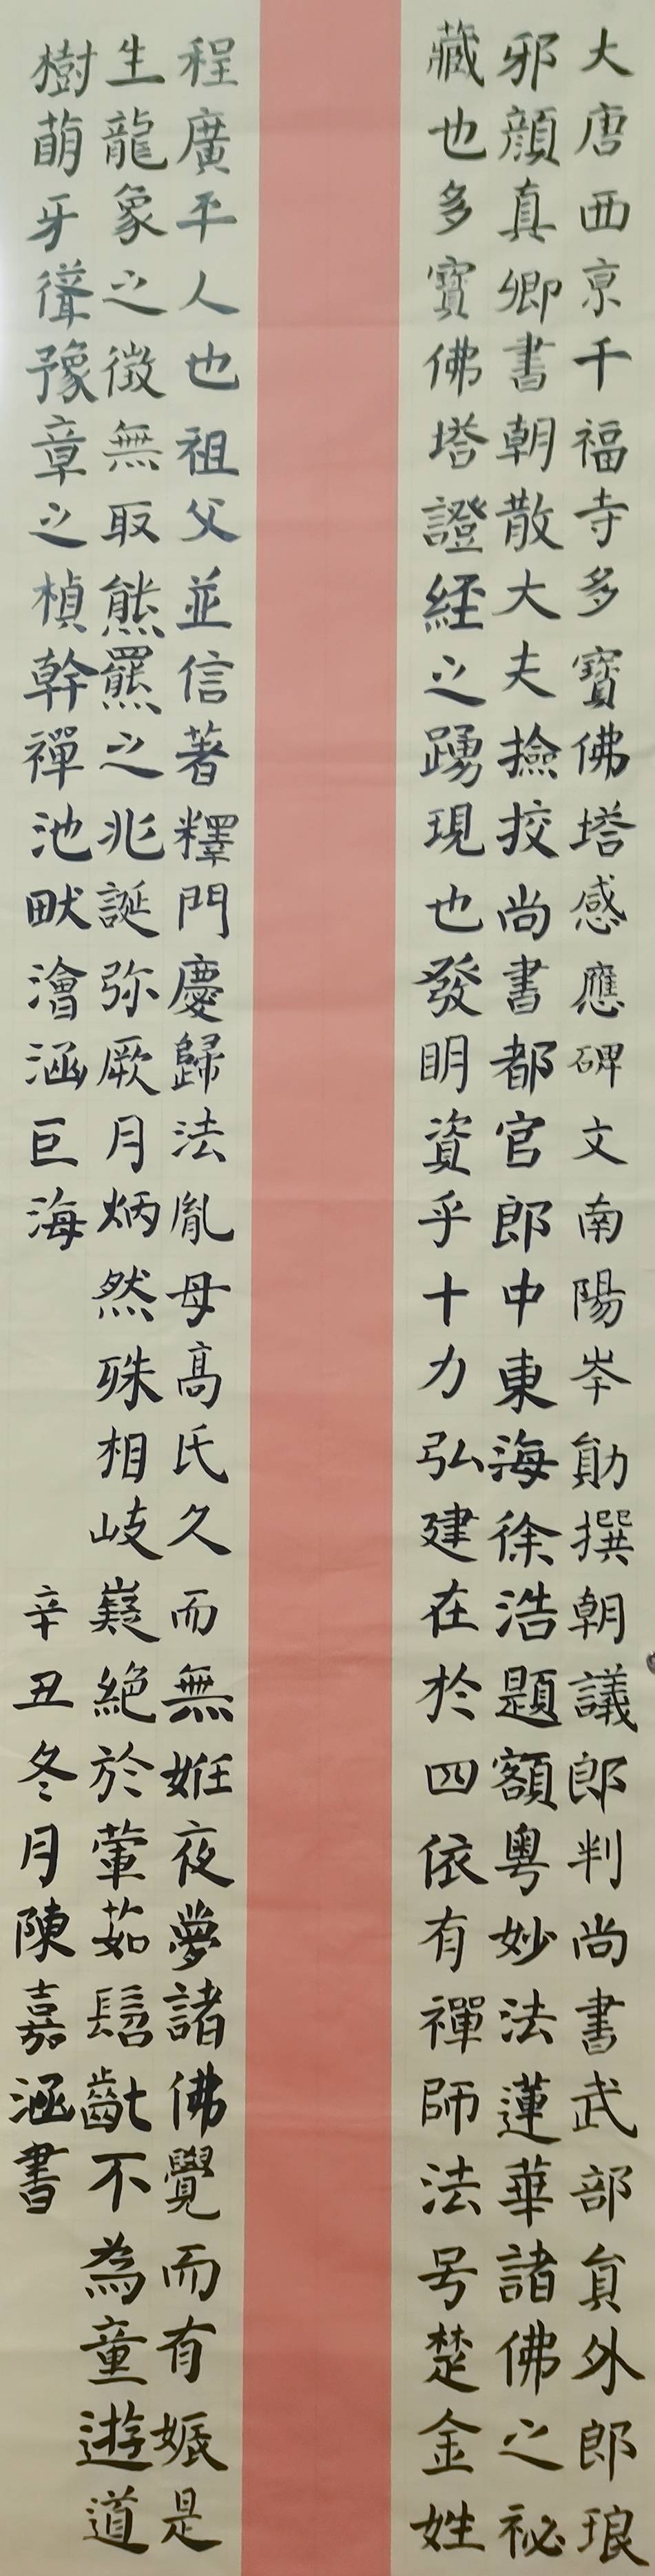 大唐西亰千福寺多寶佛塔感應碑文南陽岑勛撰朝議郎判尚書武部貟外郎琅
邪顔真卿書朝散大夫撿挍尚書都官郎中東海徐浩題額粵妙法蓮華諸佛之祕
藏也多寶佛塔證經之踴現也發明資乎十力弘建在於四依有禪師法号楚金姓
程廣平人也祖父並信著釋門慶歸法胤母高氏久而無姙夜夢諸佛覺而有娠是
生龍象之徵無取熊羆之兆誕弥厥月炳然殊相岐嶷絶於葷茹髫齓不為童遊道
樹萌牙聳豫章之楨幹禪池畎澮涵巨海
辛丑冬月陳嘉涵書